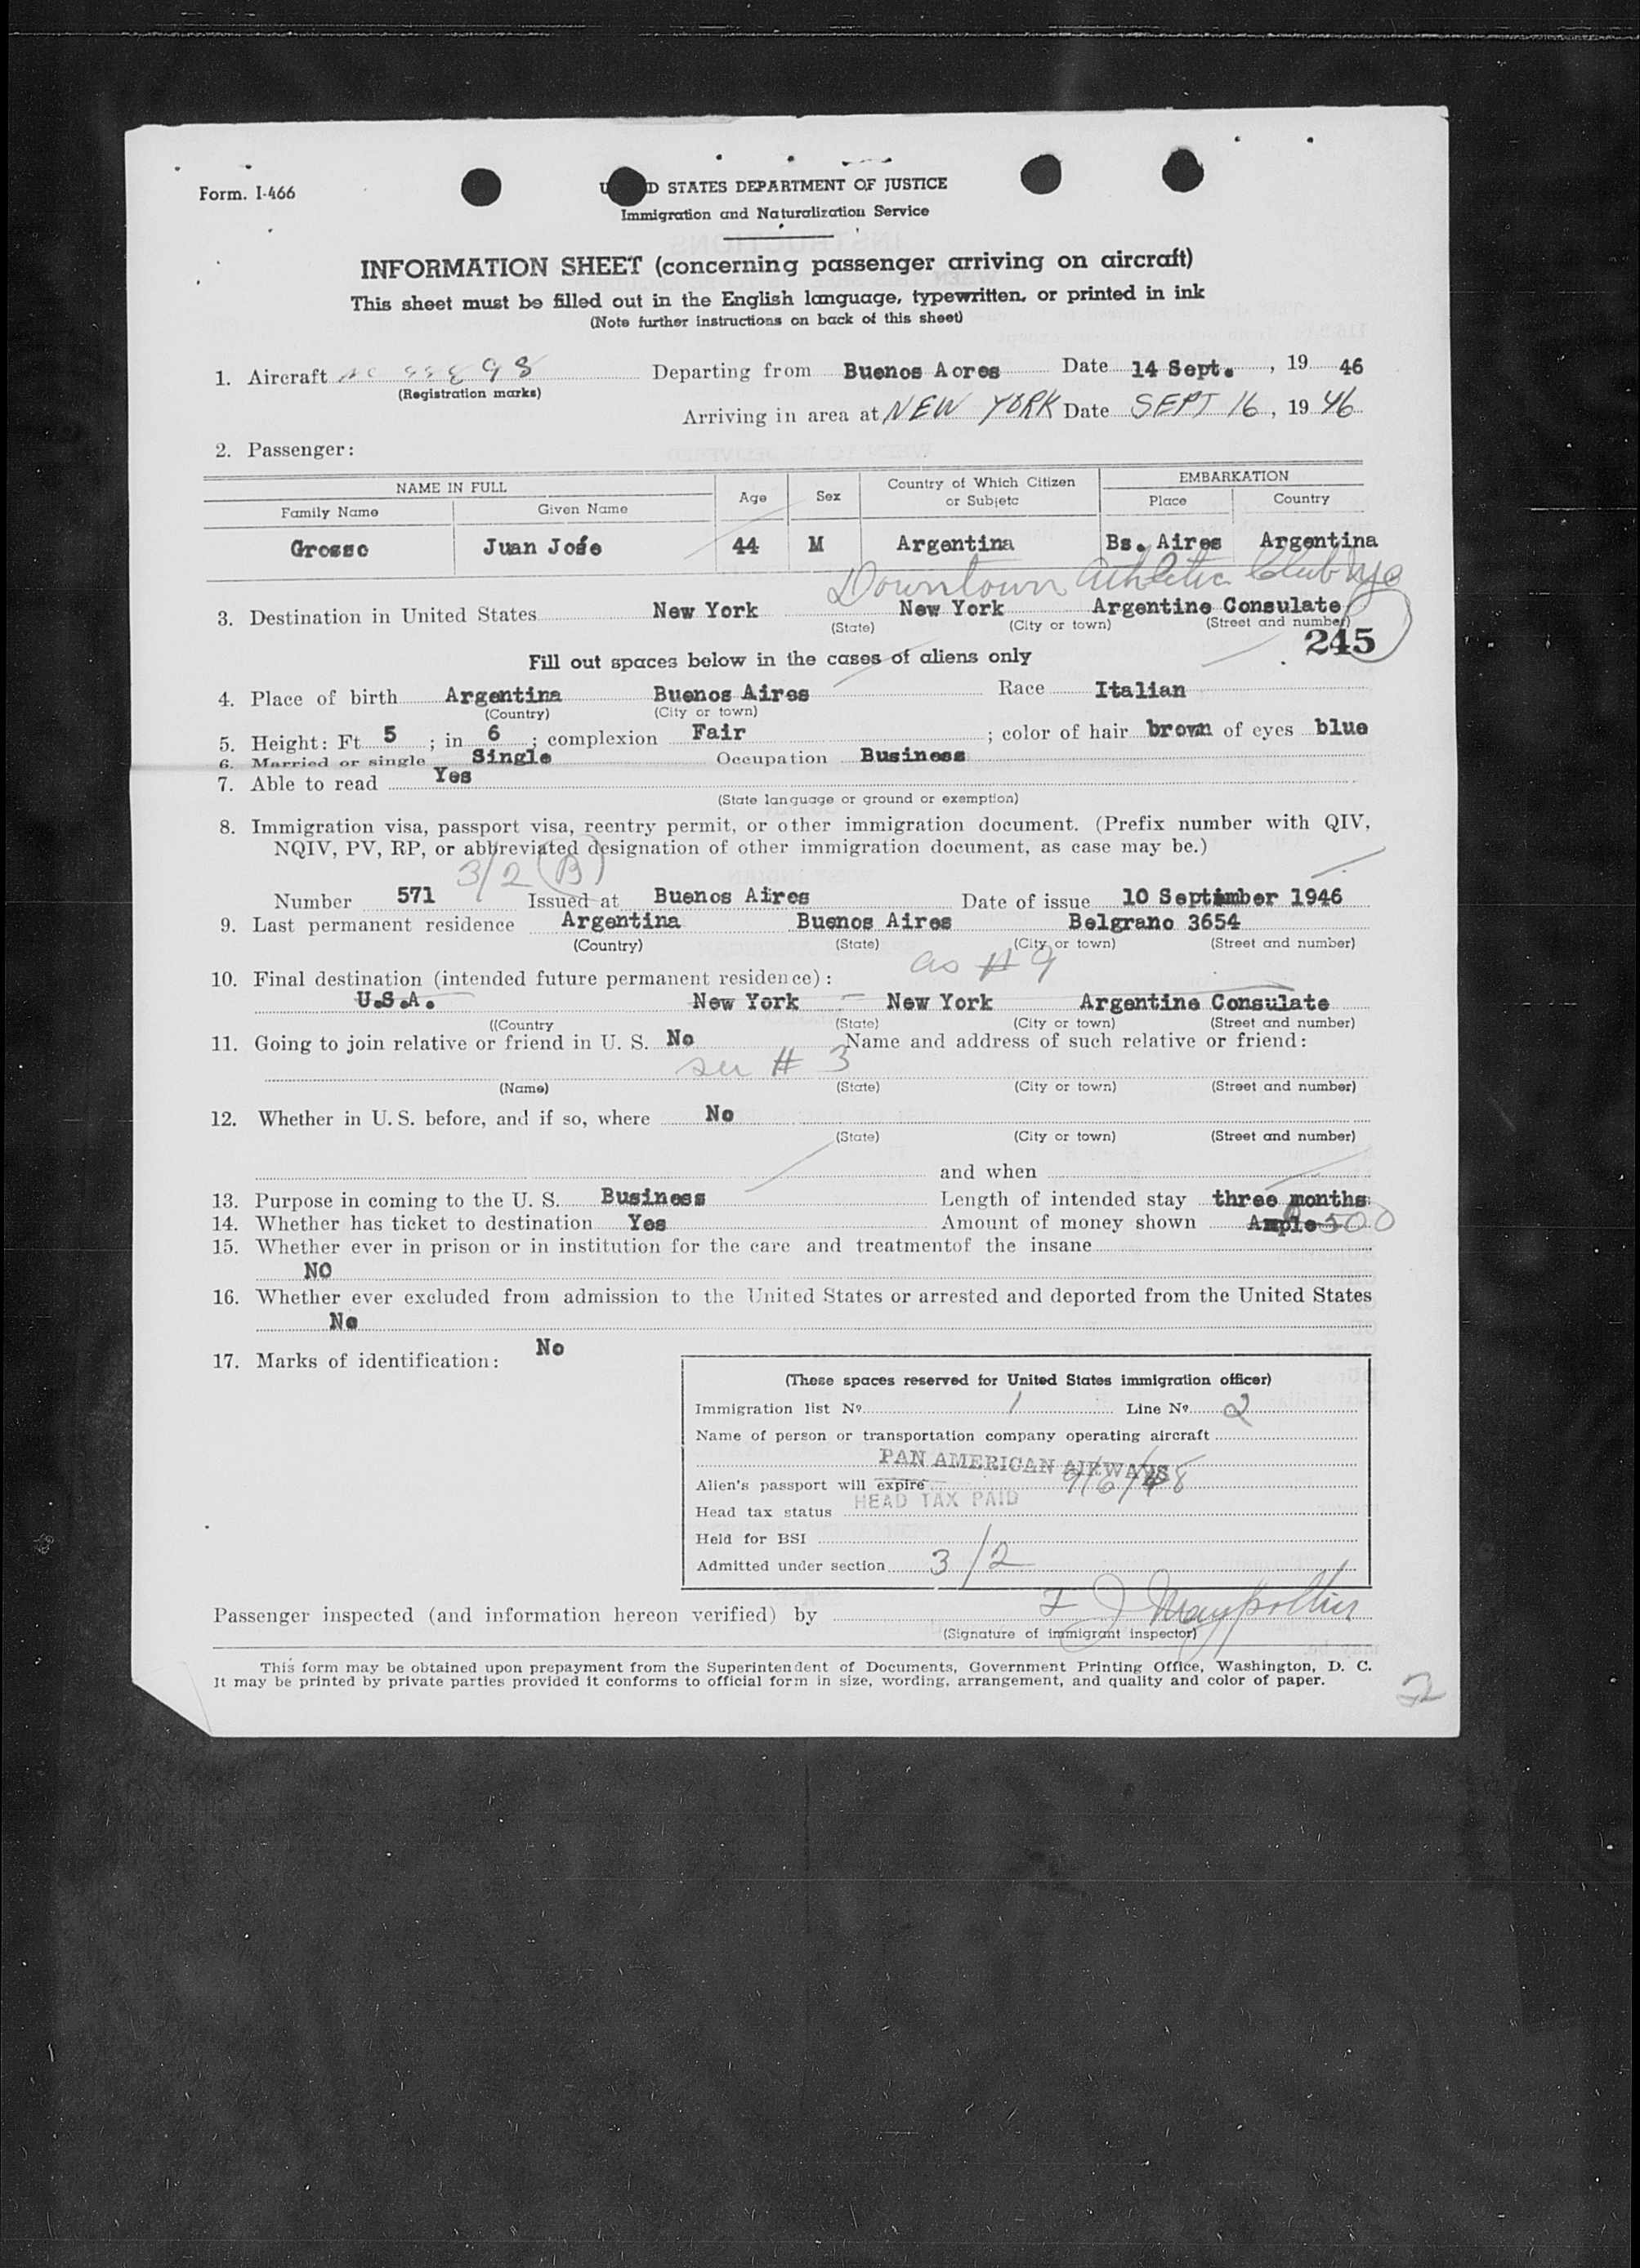 Form. I-466
U D STATES DEPARTMENT OF JUSTICE
Immigration and Naturalization Service
INFORMATION SHEET (concerning passenger arriving on aircraft)
This sheet must be filled out in the English language, typewritten, or printed in ink
(Note further instructions on back of this sheet)
1. Aircraft Departing from Buenos Aores Date 14 Sept. , 19 46
(Registration marks)
Arriving in area at NEW YORK Date SEPT 16 , 19 46
2. Passenger:
NAME IN FULL Age Sex Country of Which Citizen or Subjetc EMBARKATION
Family Name Given Name Place Country
Grosso Juan José 44 M Argentina Bs. Aires Argentina
Downtown Athletic Club NYC
3. Destination in United States New York New York Argentine Consulate
(State) (City or town) (Street and number)
245
Fill out spaces below in the cases of aliens only
4. Place of birth Argentina Buenos Aires Race Italian
(Country) (City or town)
5. Height: Ft 5 ; in 6 ; complexion Fair ; color of hair brown of eyes blue
6. Married or single Single Occupation Business
7. Able to read Yes
(State language or ground or exemption)
8. Immigration visa, passport visa, reentry permit, or other immigration document. (Prefix number with QIV,
NQIV, PV, RP, or abbreviated designation of other immigration document, as case may be.)
3/2 (B)
Number 571 Issued at Buenos Aires Date of issue 10 September 1946
9. Last permanent residence Argentina Buenos Aires Belgrano 3654
(Country) (State) (City or town) (Street and number)
as # 9
10. Final destination (intended future permanent residence):
U.S.A. New York New York Argentine Consulate
((Country (State) (City or town) (Street and number)
11. Going to join relative or friend in U. S. No Name and address of such relative or friend:
see # 3
(Name) (State) (City or town) (Street and number)
12. Whether in U. S. before, and if so, where No
(State) (City or town) (Street and number)
and when
13. Purpose in coming to the U. S. Business Length of intended stay three months
14. Whether has ticket to destination Yes Amount of money shown Ample 500
15. Whether ever in prison or in institution for the care and treatmentof the insane
NO
16. Whether ever excluded from admission to the United States or arrested and deported from the United States
No
17. Marks of identification: No
(These spaces reserved for United States immigration officer)
Immigration list Nº 1 Line Nº 2
Name of person or transportation company operating aircraft
PAN AMERICAN AIRWAYS
Alien's passport will expire 9/6/48
Head tax status HEAD TAX PAID
Held for BSI
Admitted under section 3/2
Passenger inspected (and information hereon verified) by
(Signature of immigrant inspector)
This form may be obtained upon prepayment from the Superintendent of Documents, Government Printing Office, Washington, D. C.
It may be printed by private parties provided it conforms to official form in size, wording, arrangement, and quality and color of paper.
2